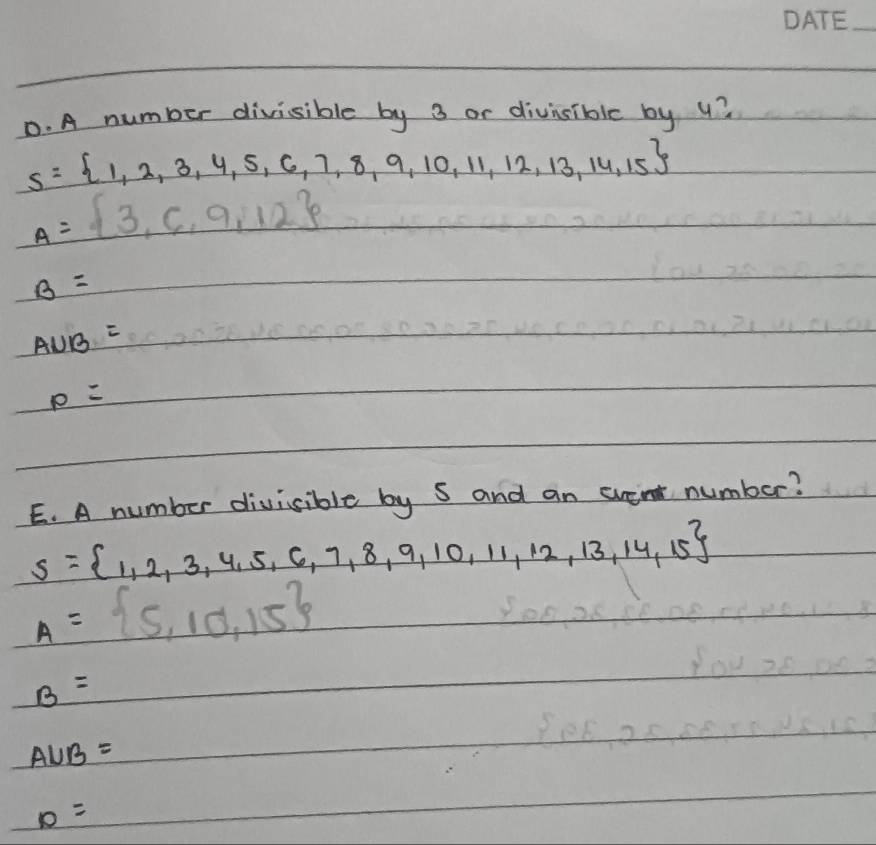 DATE
D. A number divisible by 3 or divisible by 4?
S = {1, 2, 3, 4, 5, 6, 7, 8, 9, 10, 11, 12, 13, 14, 15}
A = {3, 6, 9, 12}
B =
AUB =
P =
E. A number divisible by 5 and an number?
S = {1, 2, 3, 4, 5, 6, 7, 8, 9, 10, 11, 12, 13, 14, 15}
A = {5, 10, 15}
B =
AUB =
P =